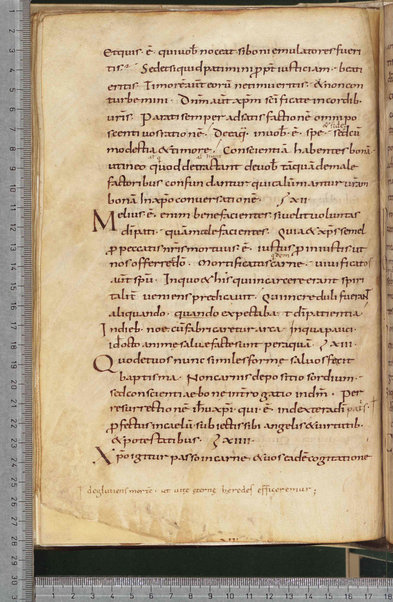 Et quis · ē · qui uob̄ noceat si boni emulatores fueri
tis? Sed et si quid patimini ꝓpt̄ iustitiam · beati
eritis. Timorē aut̄ eorū ne timueritis · & non con
turbemini · Dn̄m aut̄ xp̄m sc̄ificate in cordib;
ur̄is · Parati semper ad satisfactionē omni po
scenti uos rationē · De ea q̄ · in uob̄ · ē · spe · sed cū
& fide
modestia & timore · Conscientiam habentes bonā ·
ut in eo quod detractant de uob̄ tāquā de male
factoribus confundantur qui calūmiantur uram̄
bonā in xp̄o conuersationē · XII
Melius · ē · enim benefacientes si uelit uoluntas
dī pati · quā malefacientes · Quia & xp̄s semel
ꝓ peccatis nr̄is mortuus · ē · iustus ꝓ iniustis ut
nos offerret dō · Mortificatus carne · uiuificatos
quidem
aut̄ spū · In quo & his qui in carcere erant spiri
taliū ueniens predicauit · Qui increduli fuerant
aliquando · quando expectaba t dī patientia
In dieb · noe cū fabricaretur arca · in qua pauci
id · octo anime salue facte sunt per aquā · XIII ·
Quod et uos nunc similes forme saluos fecit
baptisma · Non carnis depositio sordium ·
sed conscientiae bone interrogatio in dm̄ · Per
resurrectionē ihu xp̄i · qui · ē · in dextera dī patris
ꝓfectus in caelū subiectis sibi angelis & uirtutib ·
& potestatibus · XIIII ·
Xp̄o igitur passo in carne · & uos eadē cogitatione
deglutiens mortē · ut uitę eternę heredes efficeremur ;